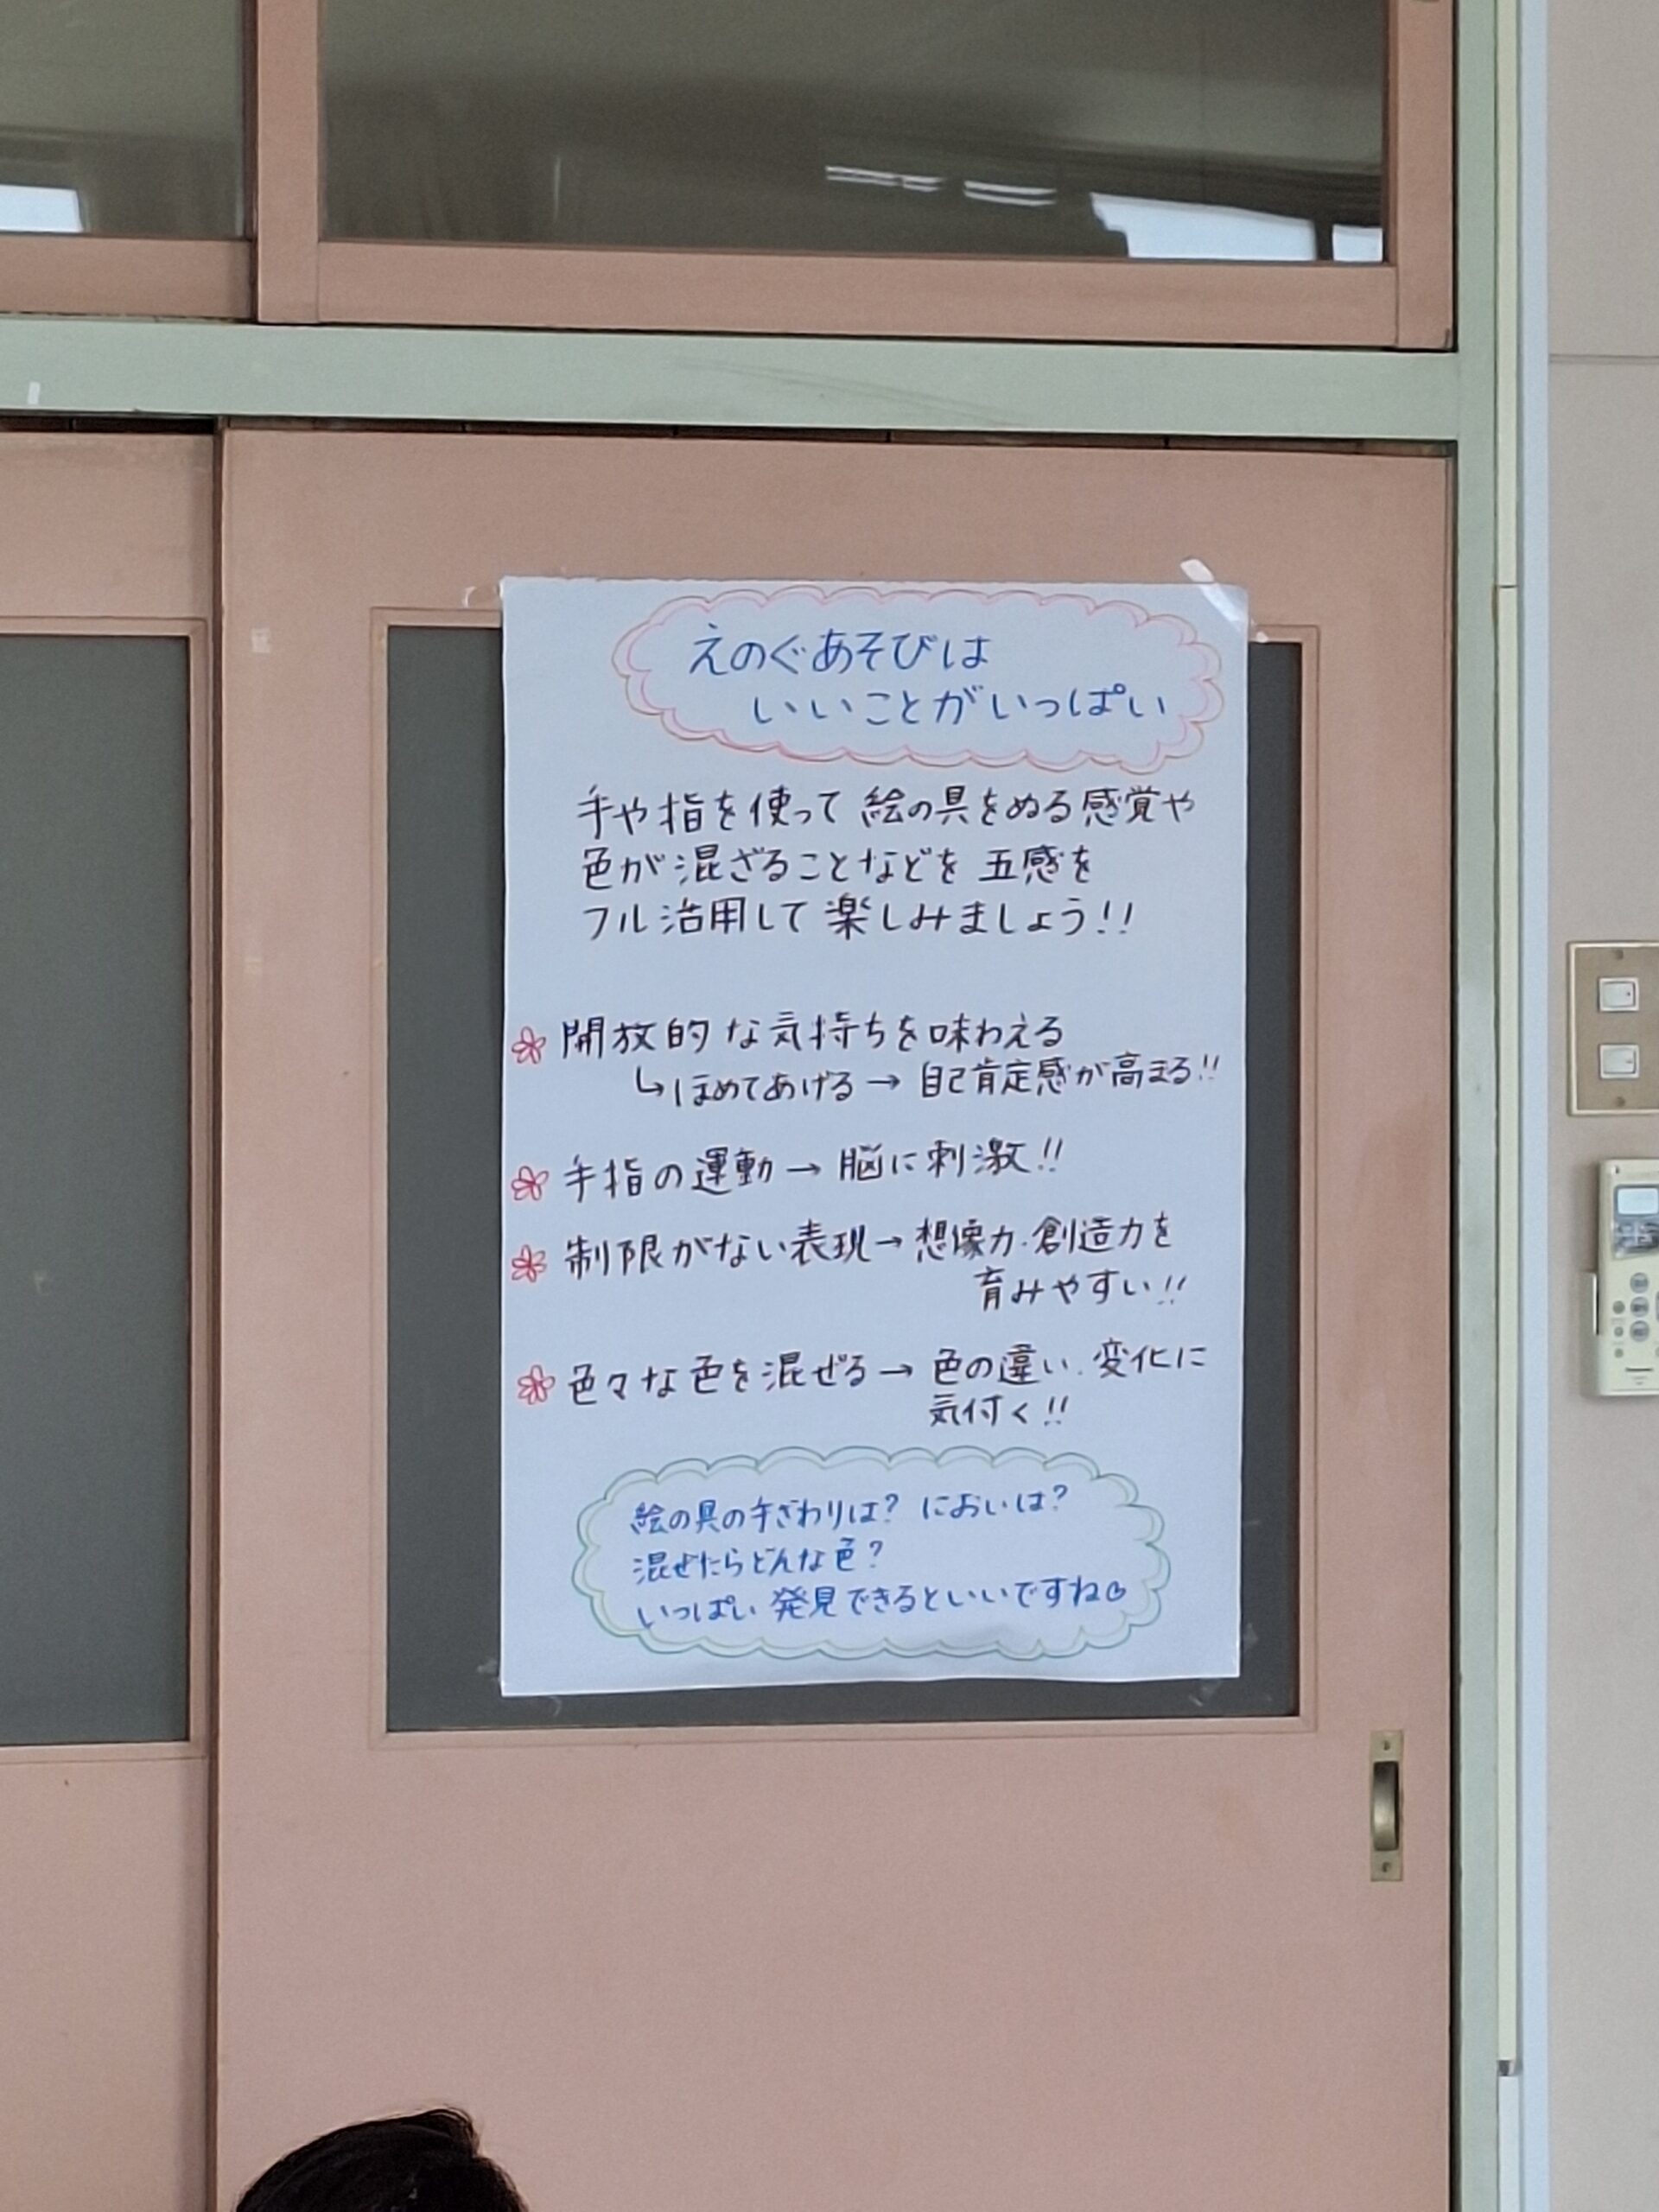 えのぐあそびは
いいことがいっぱい
手や指を使って 絵の具をぬる感覚や
色が混ざることなどを 五感を
フル活用して 楽しみましょう!!
開放的な気持ちを味わえる
↳ほめてあげる→ 自己肯定感が高まる!!
手指の運動→ 脳に刺激!!
制限がない表現→想像力・創造力を
育みやすい!!
色々な色を混ぜる→ 色の違い、変化に
気付く!!
絵の具の手ざわりは? においは?
混ぜたらどんな色?
いっぱい 発見できるといいですね